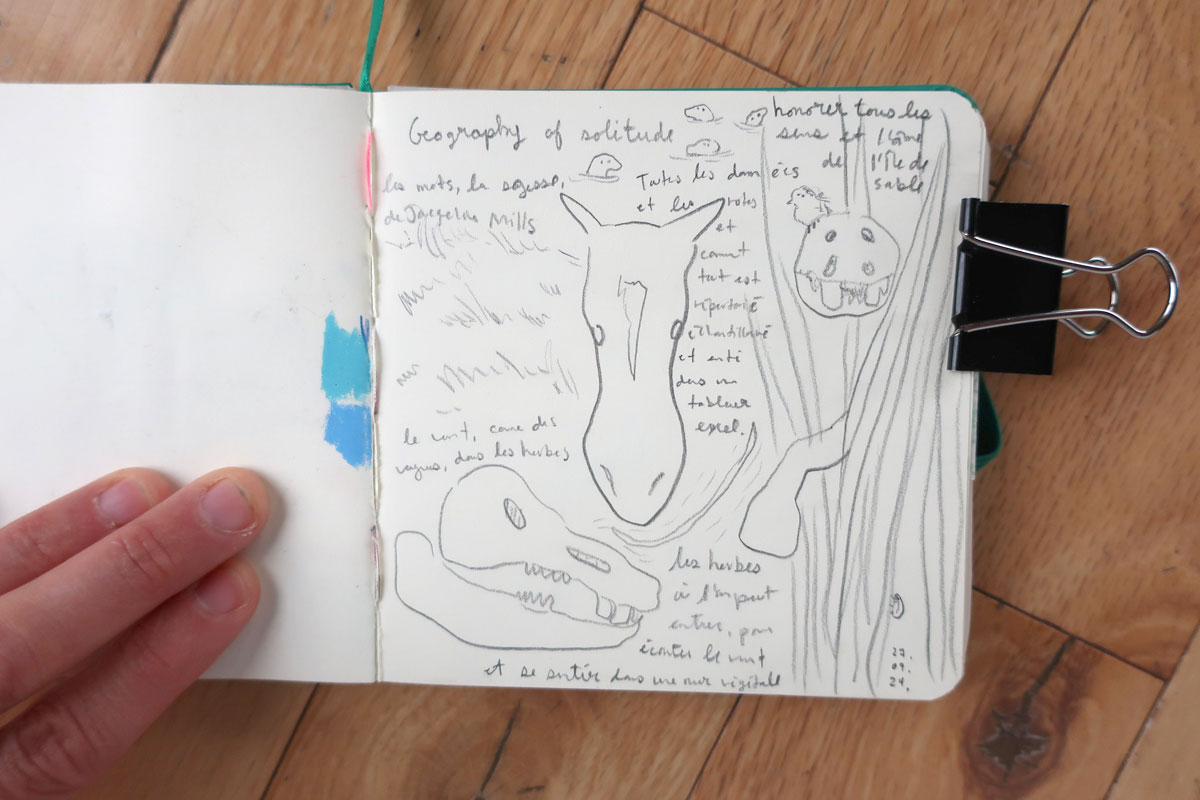 Geography of solitude
les mots, la sagesse,
de Jacqueline Mills
honorer tous les
sens et l'âme
de l'Île de
sable
Toutes les données
et les notes
et
comment
tout est
répertorié
échantillonné
et entré
dans un
tableur
excel.
le vent, comme des
vagues, dans les herbes
les herbes
où l'on peut
entrer, pour
écouter le vent
et se sentir dans une mer végétale
27.
09.
24.